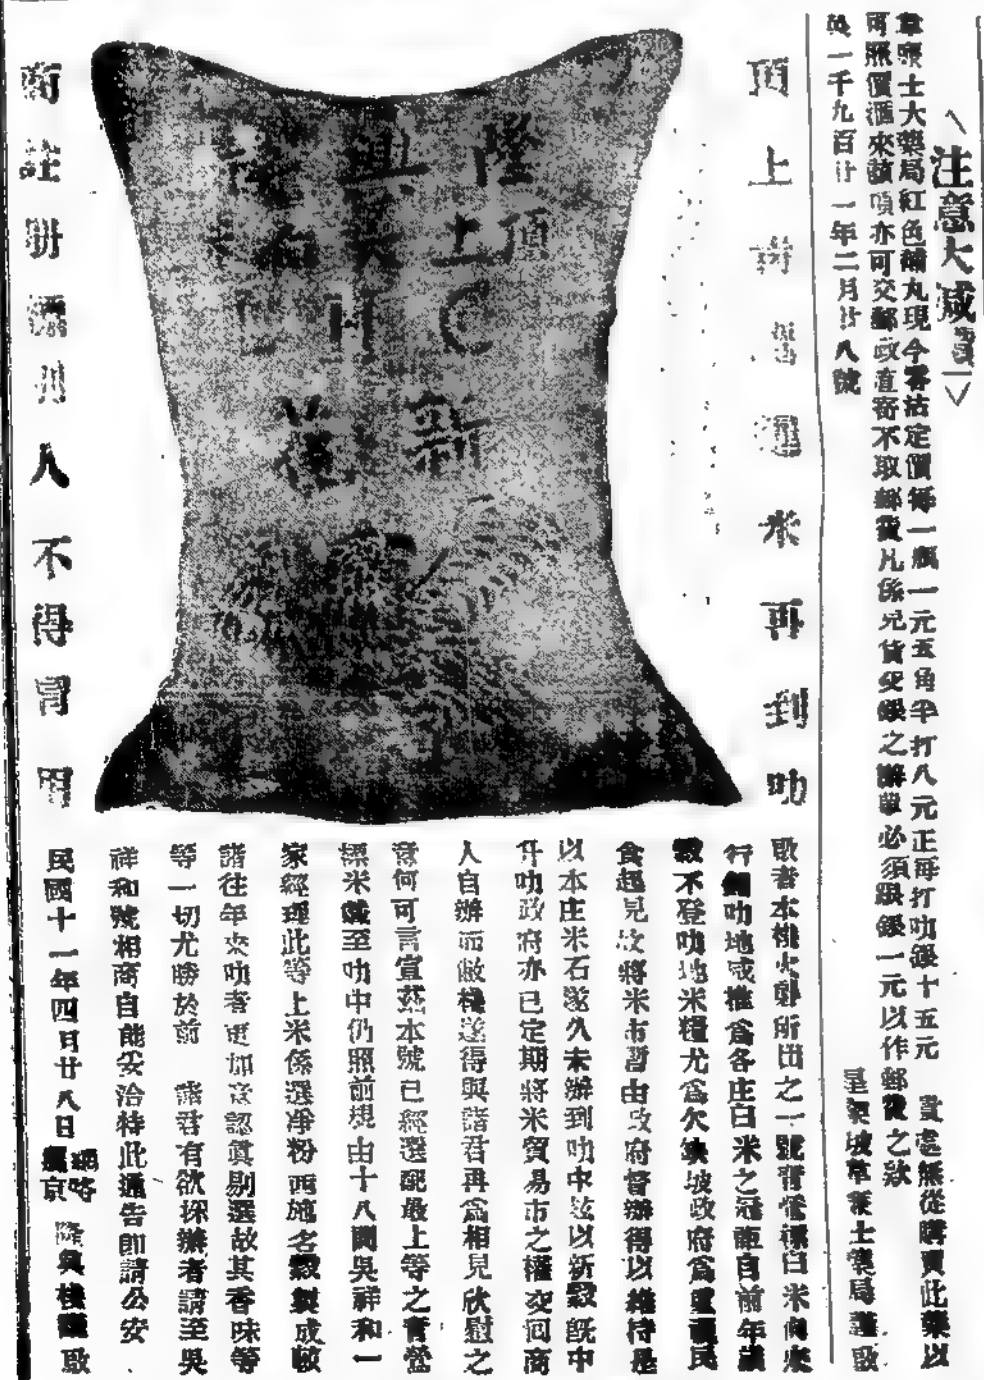 注意大減賣
韋廉士大藥局紅色補丸現今零沽定價每一瓶一元五角半打八元正每打叻銀十五元 貴處無從購買此藥以
可照價滙來該項亦可交郵政直寄不取郵費凡係見貨交銀之辦單必須跟銀一元以作郵費之欵
星架坡韋廉士藥局謹啟
英一千九百廿一年二月廿八號
頂上青 邏米再到叻
隆興棧
頂上
C H
新花
啟者本棧火郊所出之一號青 標白米向來
行銷叻地咸推為各庄白米之冠距自前年
穀不登叻地米糧尤為欠缺坡政府為重視民
食起見故將米市暫由政府督辦得以維持是
以本庄米石遂久未辦到叻中玆以新穀既中
什叻政府亦已定期將米貿易市之權交回商
人自辦而敝棧遂得與諸君再為相見欣慰之
意何可言宣玆本號已經選配最上等之青
標米儎至叻中仍照前規由十八間吳祥和一
家經理此等上米係選淨粉西施名穀製成較
諸往年來叻者更加意認眞剔選故其香味等
等一切尤勝於前 諸君有欲採辦者請至吳
祥和號相商自能妥洽特此通告即請公安
民國十一年四月廿八日 暹京 隆興棧 啟
商註册 別人不得冒用